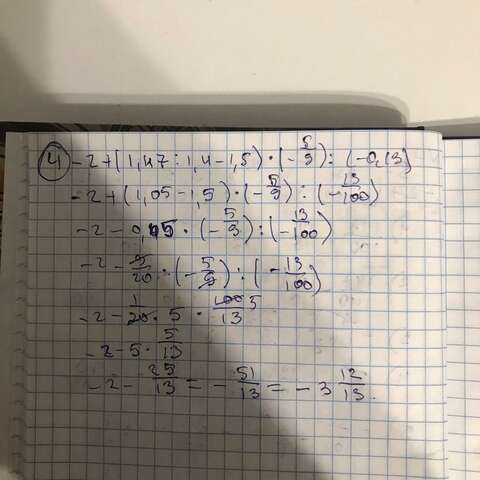 4) -2+(1,47:1,4-1,5)·(-5/9):(-0,13)
-2+(1,05-1,5)·(-5/9):(-13/100)
-2-0,45·(-5/9):(-13/100)
-2-9/20·(-5/9):(-13/100)
-2-1/20·5·100/13 5
-2-5·5/13
-2-25/13=-51/13=-3 12/13.